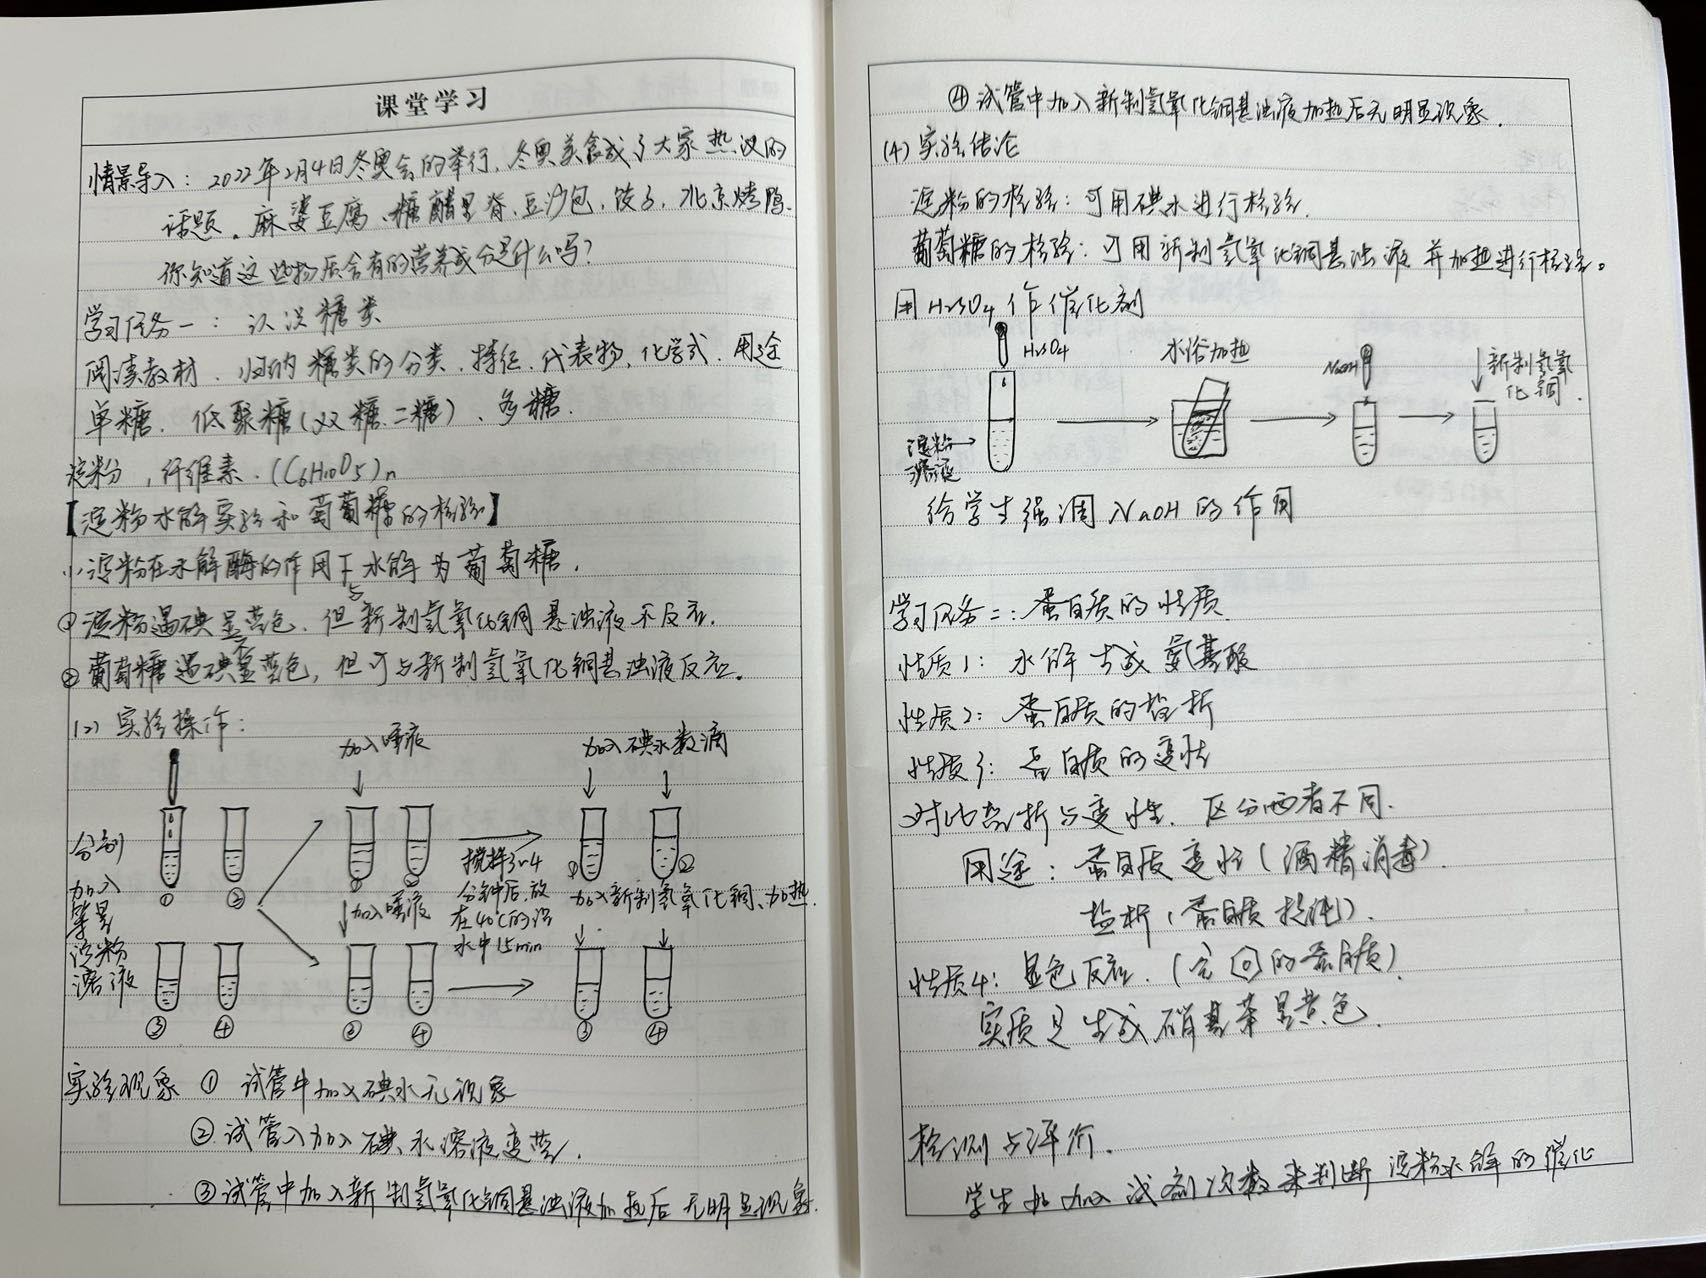 课堂学习
情景导入：2022年2月4日冬奥会的举行，冬奥美食成了大家热议的
话题。麻婆豆腐、糖醋里脊、豆沙包、饺子、北京烤鸭.
你知道这些物质含有的营养成分是什么吗？
学习任务一：认识糖类
阅读教材、归纳糖类的分类、特征、代表物、化学式、用途
单糖、低聚糖（双糖.二糖）、多糖.
淀粉，纤维素.(C6H10O5)n
【淀粉水解实验和葡萄糖的检验】
(1)淀粉在水解酶的作用下水解为葡萄糖.
①淀粉遇碘显蓝色、但与新制氢氧化铜悬浊液不反应.
②葡萄糖遇碘不显蓝色，但可与新制氢氧化铜悬浊液反应。
(2)实验操作：
加入唾液
加入碘水数滴
分别
加入
等量
淀粉
溶液
① ②
① ②
搅拌3~4
分钟后，放
在40℃的温
水中15min
① ②
加入唾液
加入新制氢氧化铜、加热
③ ④
③ ④
③ ④
实验现象 ① 试管中加入碘水无现象
②试管入加入碘水溶液变蓝.
③试管中加入新制氢氧化铜悬浊液加热后无明显现象.
④试管中加入新制氢氧化铜悬浊液加热后无明显现象.
(4)实验结论
淀粉的检验：可用碘水进行检验.
葡萄糖的检验：可用新制氢氧化铜悬浊液并加热进行检验。
用H2SO4作催化剂
H2SO4
水浴加热
NaOH
新制氢氧
化铜.
淀粉
溶液
给学生强调NaOH的作用
学习任务二：蛋白质的性质
性质1：水解生成氨基酸
性质2：蛋白质的盐析
性质3：蛋白质的变性
对比盐析与变性、区分两者不同.
用途：蛋白质变性（酒精消毒）.
盐析（蛋白质提纯）.
性质4：显色反应.（含的蛋白质）
实质是生成硝基苯呈黄色.
检测与评价.
学生加加入试剂次数来判断淀粉水解的催化